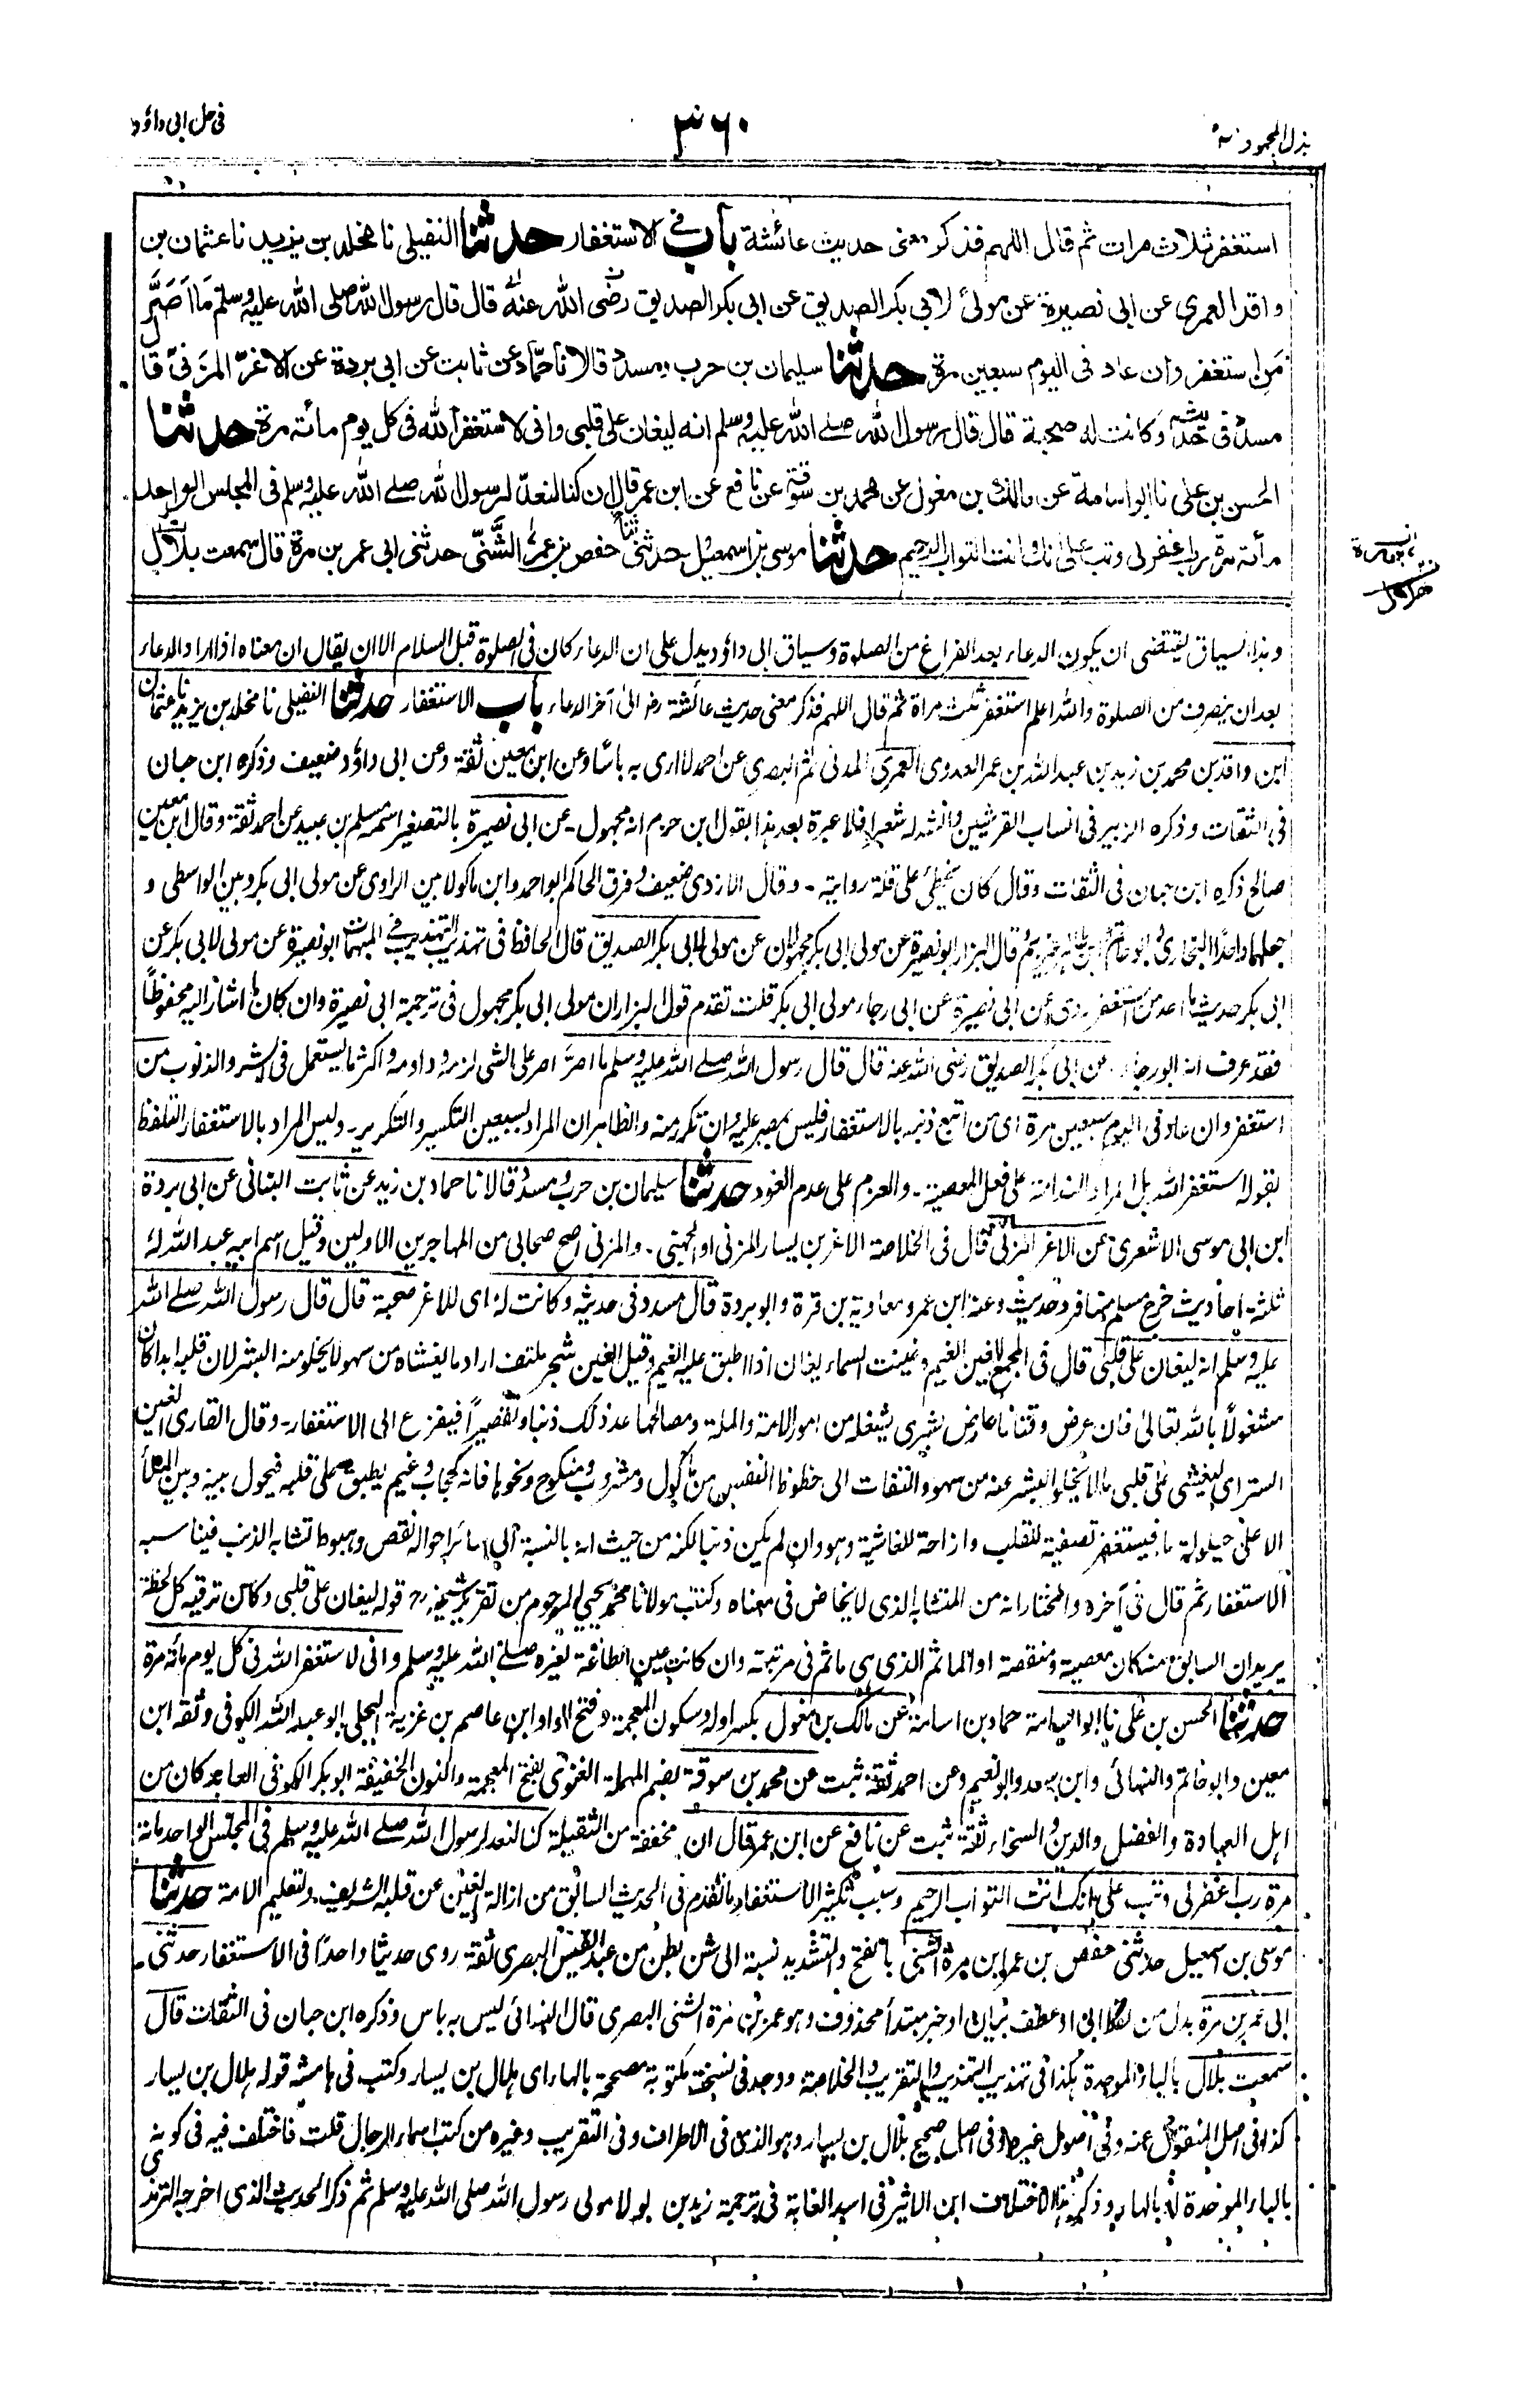 بذل المجهود
۳۶۰
فی حل ابی داؤد
استغفر ثلاث مرات ثم قال اللهم فذكر معنى حديث عائشة باب في الاستغفار حدثنا النفيلى نا مخلد بن يزيد نا عثمان بن
واقد العمرى عن ابى نصيرة عن مولىً لابى بكر الصديق عن ابى بكر الصديق رضى الله عنه قال قال رسول الله صلى الله عليه وسلم مَا اَصَرَّ
مَنِ استغفر وان عاد فى اليوم سبعين مرة حدثنا سليمان بن حرب ومسدد قالا نا حمّاد عن ثابت عن ابى بردة عن الاغرّ المزَنىّ قال
مسدد فى حديثه وكانت له صحبة قال قال رسول الله صلے الله عليه وسلم انه ليغان على قلبى وانى لاستغفر الله فى كل يوم مائة مرة حدثنا
الحسن بن على نا ابو اسامة عن مالك بن مغول عن محمد بن سوقة عن نافع عن ابن عمر قال ان كنا لنعدّ لرسول الله صلے الله عليه وسلم فى المجلس الواحد
مائة مرة رب اغفر لى وتب على انك انت التواب الرحيم حدثنا موسى بن اسمعيل حدثنى حفص بن عمر الشَّنِّىّ حدثنى ابى عمر بن مرة قال سمعت بلال
وهذا السياق يقتضى ان يكون الدعاء بعد الفراغ من الصلوة وسياق ابى داؤد يدل على ان الدعاء كان فى الصلوة قبل السلام الا ان يقال ان معناه اذا اراد الدعاء
بعد ان ينصرف من الصلوة والله اعلم استغفر ثلث مراة ثم قال اللهم فذكر معنى حديث عائشة رض الى آخر الدعاء باب الاستغفار حدثنا النفيلى نا مخلد بن يزيد نا عثمان
ابن واقد بن محمد بن زيد بن عبد الله بن عمر العدوى العمرى المدنى ثم البصرى عن احمد لا ارى به باسًا وعن ابن معين ثقة وعن ابى داؤد ضعيف وذكره ابن حبان
فى الثقات وذكره الزبير فى انساب القرشيين وانشد له شعرا فلا عبرة بعد هذا بقول ابن حزم انه مجهول - عن ابى نصيرة بالتصغير اسمه مسلم بن عبيد عن احمد ثقة وقال ابن معين
صالح ذكره ابن حبان فى الثقات وقال كان يخطئ على قلة روايته - وقال الازدى ضعيف وفرق الحاكم ابو احمد وابن ماكولا بين الراوى عن مولى ابى بكر وبين الواسطى و
جعلهما واحدًا البخارى وابو حاتم قال البزار ابو نصيرة عن مولى ابى بكر مجهولان عن مولى لابى بكر الصديق قال الحافظ فى تهذيب التهذيب فى المبهمات ابو نصيرة عن مولى لابى بكر عن
ابى بكر حديث ما اصر من استغفر روى عن ابى نصيرة عن ابى رجاء مولى ابى بكر قلت تقدم قول البزار ان مولى ابى بكر مجهول فى ترجمة ابى نصيرة وان كان ما اشار اليه محفوظًا
فقد عرف انه ابو رجاء عن ابى بكر الصديق رضى الله عنه قال قال رسول الله صلے الله عليه وسلم ما اصرّ اصر على الشى لزمه وداومه واكثر ما يستعمل فى الشر والذنوب من
استغفر وان عاد فى اليوم سبعين مرة اى من اتبع ذنبه بالاستغفار فليس بمصر عليه وان تكرر منه والظاهر ان المراد بسبعين التكثير والتكرير - وليس المراد بالاستغفار التلفظ
بقوله استغفر الله بل المراد الندامة على فعل المعصية - والعزم على عدم العود حدثنا سليمان بن حرب ومسدد قالا نا حماد بن زيد عن ثابت البنانى عن ابى بردة
ابن ابى موسى الاشعرى عن الاغر المزنى قال فى الخلاصة الاغر بن يسار المزنى او الجهنى - والمزنى اصح صحابى من المهاجرين الاولين وقيل اسم ابيه عبد الله له
ثلثة احاديث خرج مسلم منها فرد حديث وعنه ابن عمر ومعاوية بن قرة وابو بردة قال مسدد فى حديثه وكانت له اى للاغر صحبة قال قال رسول الله صلے الله
عليه وسلم انه ليغان على قلبى قال فى المجمع الغين الغيم وغينت السماء يغان اذا اطبق عليه الغيم وقيل الغين شجر ملتف اراد ما يغشاه من سهو لا يخلو منه البشر لان قلبه ابدا كان
مشغولًا بالله تعالى فان عرض وقتا ما عارض بشرى يشغله من امور الامة والملة ومصالحها عد ذلك ذنبا وتقصيرًا فيفزع الى الاستغفار - وقال القارى الغين
الستر اى ليغشى على قلبى ما لا يخلو البشر عنه من سهو والتفات الى حظوظ النفس من ماكول ومشروب ومنكوح ونحوها فانه كحجاب وغيم يطبق على قلبه فيحول بينه وبين الملأ
الاعلى حيلولة ما فيستغفر تصفية للقلب وازاحة للغاشية وهو وان لم يكن ذنبا لكنه من حيث انه بالنسبة الى سائر احواله نقص وهبوط تشابه الذنب فيناسبه
الاستغفار ثم قال فى آخره والمختار انه من المتشابه الذى لا يخاض فى معناه وكتب مولانا محمد يحيى المرحوم من تقرير شيخه رح قوله ليغان على قلبى وكانت ترقيه كل لحظة
يريد ان السابق منه كان معصية ومنقصة او المأثم الذى هى مأثم فى مرتبته وان كانت عين الطاعة لغيره صلے الله عليه وسلم وانى لاستغفر الله فى كل يوم مائة مرة
حدثنا الحسن بن على نا ابو اسامة حماد بن اسامة عن مالك بن مغول بكسر اوله وسكون المعجمة وفتح الواو ابن عاصم بن غزية البجلى ابو عبد الله الكوفى وثقه ابن
معين وابو حاتم والنسائى وابن سعد وابو نعيم وعن احمد ثقة ثبت عن محمد بن سوقة بضم المهملة الغنوى بفتح المعجمة والنون الخفيفة ابو بكر الكوفى العابد كان من
اهل العبادة والفضل والدين والسخاء ثقة ثبت عن نافع عن ابن عمر قال ان مخففة من الثقيلة كنا لنعد لرسول الله صلے الله عليه وسلم فى المجلس الواحد مائة
مرة رب اغفر لى وتب على انك انت التواب الرحيم وسبب تكثير الاستغفار ما تقدم فى الحديث السابق من ازالة الغين عن قلبه الشريف ولتعليم الامة حدثنا
موسى بن اسمعيل حدثنى حفص بن عمر ابن مرة الشنى بالفتح والتشديد نسبة الى شن بطن من عبد القيس البصرى ثقة روى حديثا واحدًا فى الاستغفار حدثنى
ابى عمر بن مرة بدل من لفظ ابى او عطف بيان او خبر مبتدأ محذوف وهو عمر بن مرة الشنى البصرى قال النسائى ليس به باس وذكره ابن حبان فى الثقات قال
سمعت بلال بالباء الموحدة هكذا فى تهذيب التهذيب والتقريب والخلاصة ووجد فى نسخة مكتوبة مصححة بالهاء اى هلال بن يسار وكتب فى هامشه قوله هلال بن يسار
كذا فى اصل المنقول عنه وفى اصول غيره وفى اصل صحيح بلال بن يسار وهو الذى فى الاطراف وفى التقريب وغيره من كتب اسماء الرجال قلت فاختلف فيه فى كونه
بالباء الموحدة او بالهاء وذكر هذا الاختلاف ابن الاثير فى اسد الغابة فى ترجمة زيد بن بولا مولى رسول الله صلى الله عليه وسلم ثم ذكر الحديث الذى اخرجه الترمذى